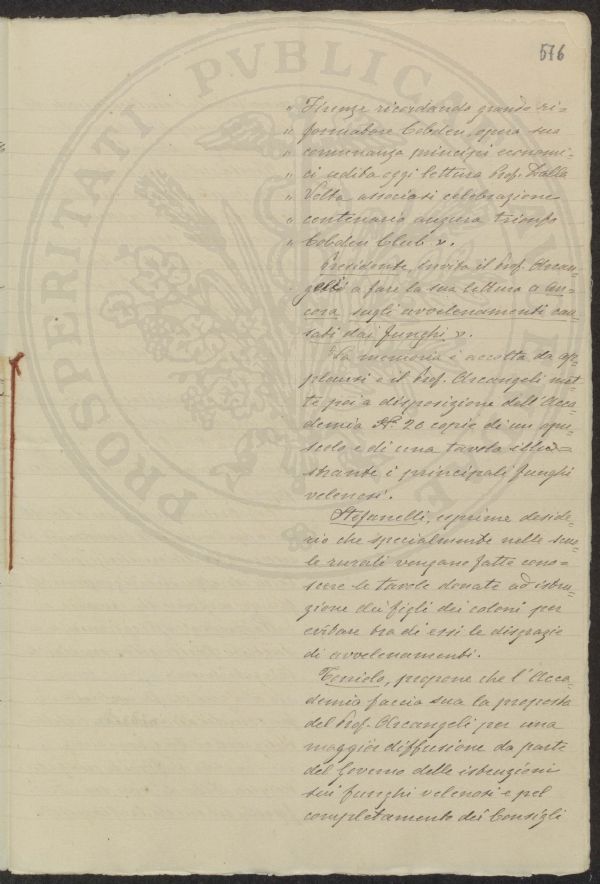 576
PROSPERITATI PVBLICAE
" Firenze ricordando grande ri=
" formatore Cobden, opera sua
" comunanza principi economi=
" ci udita oggi lettura Prof. Dalla
" Volta associasi celebrazione
" centenario augura trionfo
" Cobden Club ".
Presidente, invita il Prof. Arcan=
geli a fare la sua lettura « An=
cora sugli avvelenamenti cau=
sati dai funghi ».
La memoria è accolta da ap=
plausi e il Prof. Arcangeli met=
te poi a disposizione dell'Acca=
demia N. 20 copie di un opu=
scolo e di una tavola illu=
strante i principali funghi
velenosi.
Stefanelli, esprime deside=
rio che specialmente nelle scuo=
le rurali vengano fatte cono=
scere le tavole donate ad istru=
zione dei figli dei coloni per
evitare tra di essi le disgrazie
di avvelenamenti.
Toniolo, propone che l'Acca=
demia faccia sua la proposta
del Prof. Arcangeli per una
maggior diffusione da parte
del Governo delle istruzioni
sui funghi velenosi e pel
completamento dei Consigli